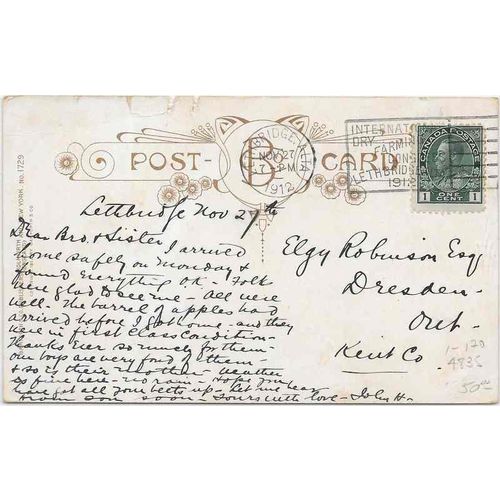 POST CARD
B
LETHBRIDGE ALTA
NOV 27
7 PM
1912
INTERNATIONAL
DRY FARMING
LETHBRIDGE
1912
CANADA POSTAGE
1 1
ONE CENT
No. 1729
NEW YORK
Lethbridge Nov 27th
Dear Bro & Sister I arrived
home safely on Monday &
found Everything OK - Folk
were glad to see me - All were
well. The barrel of apples had
arrived before I got home - and they
were in first Class Condition -
Thanks Ever so much for them -
our boys are very fond of them
& so is their Mother - Weather
so fine here - no rain - Hope you
have got all your beets up - let me hear
from you soon - Yours with love - John H-
Elgy Robinson Esq
Dresden -
Ont -
Kent Co.
1-120
4835
50